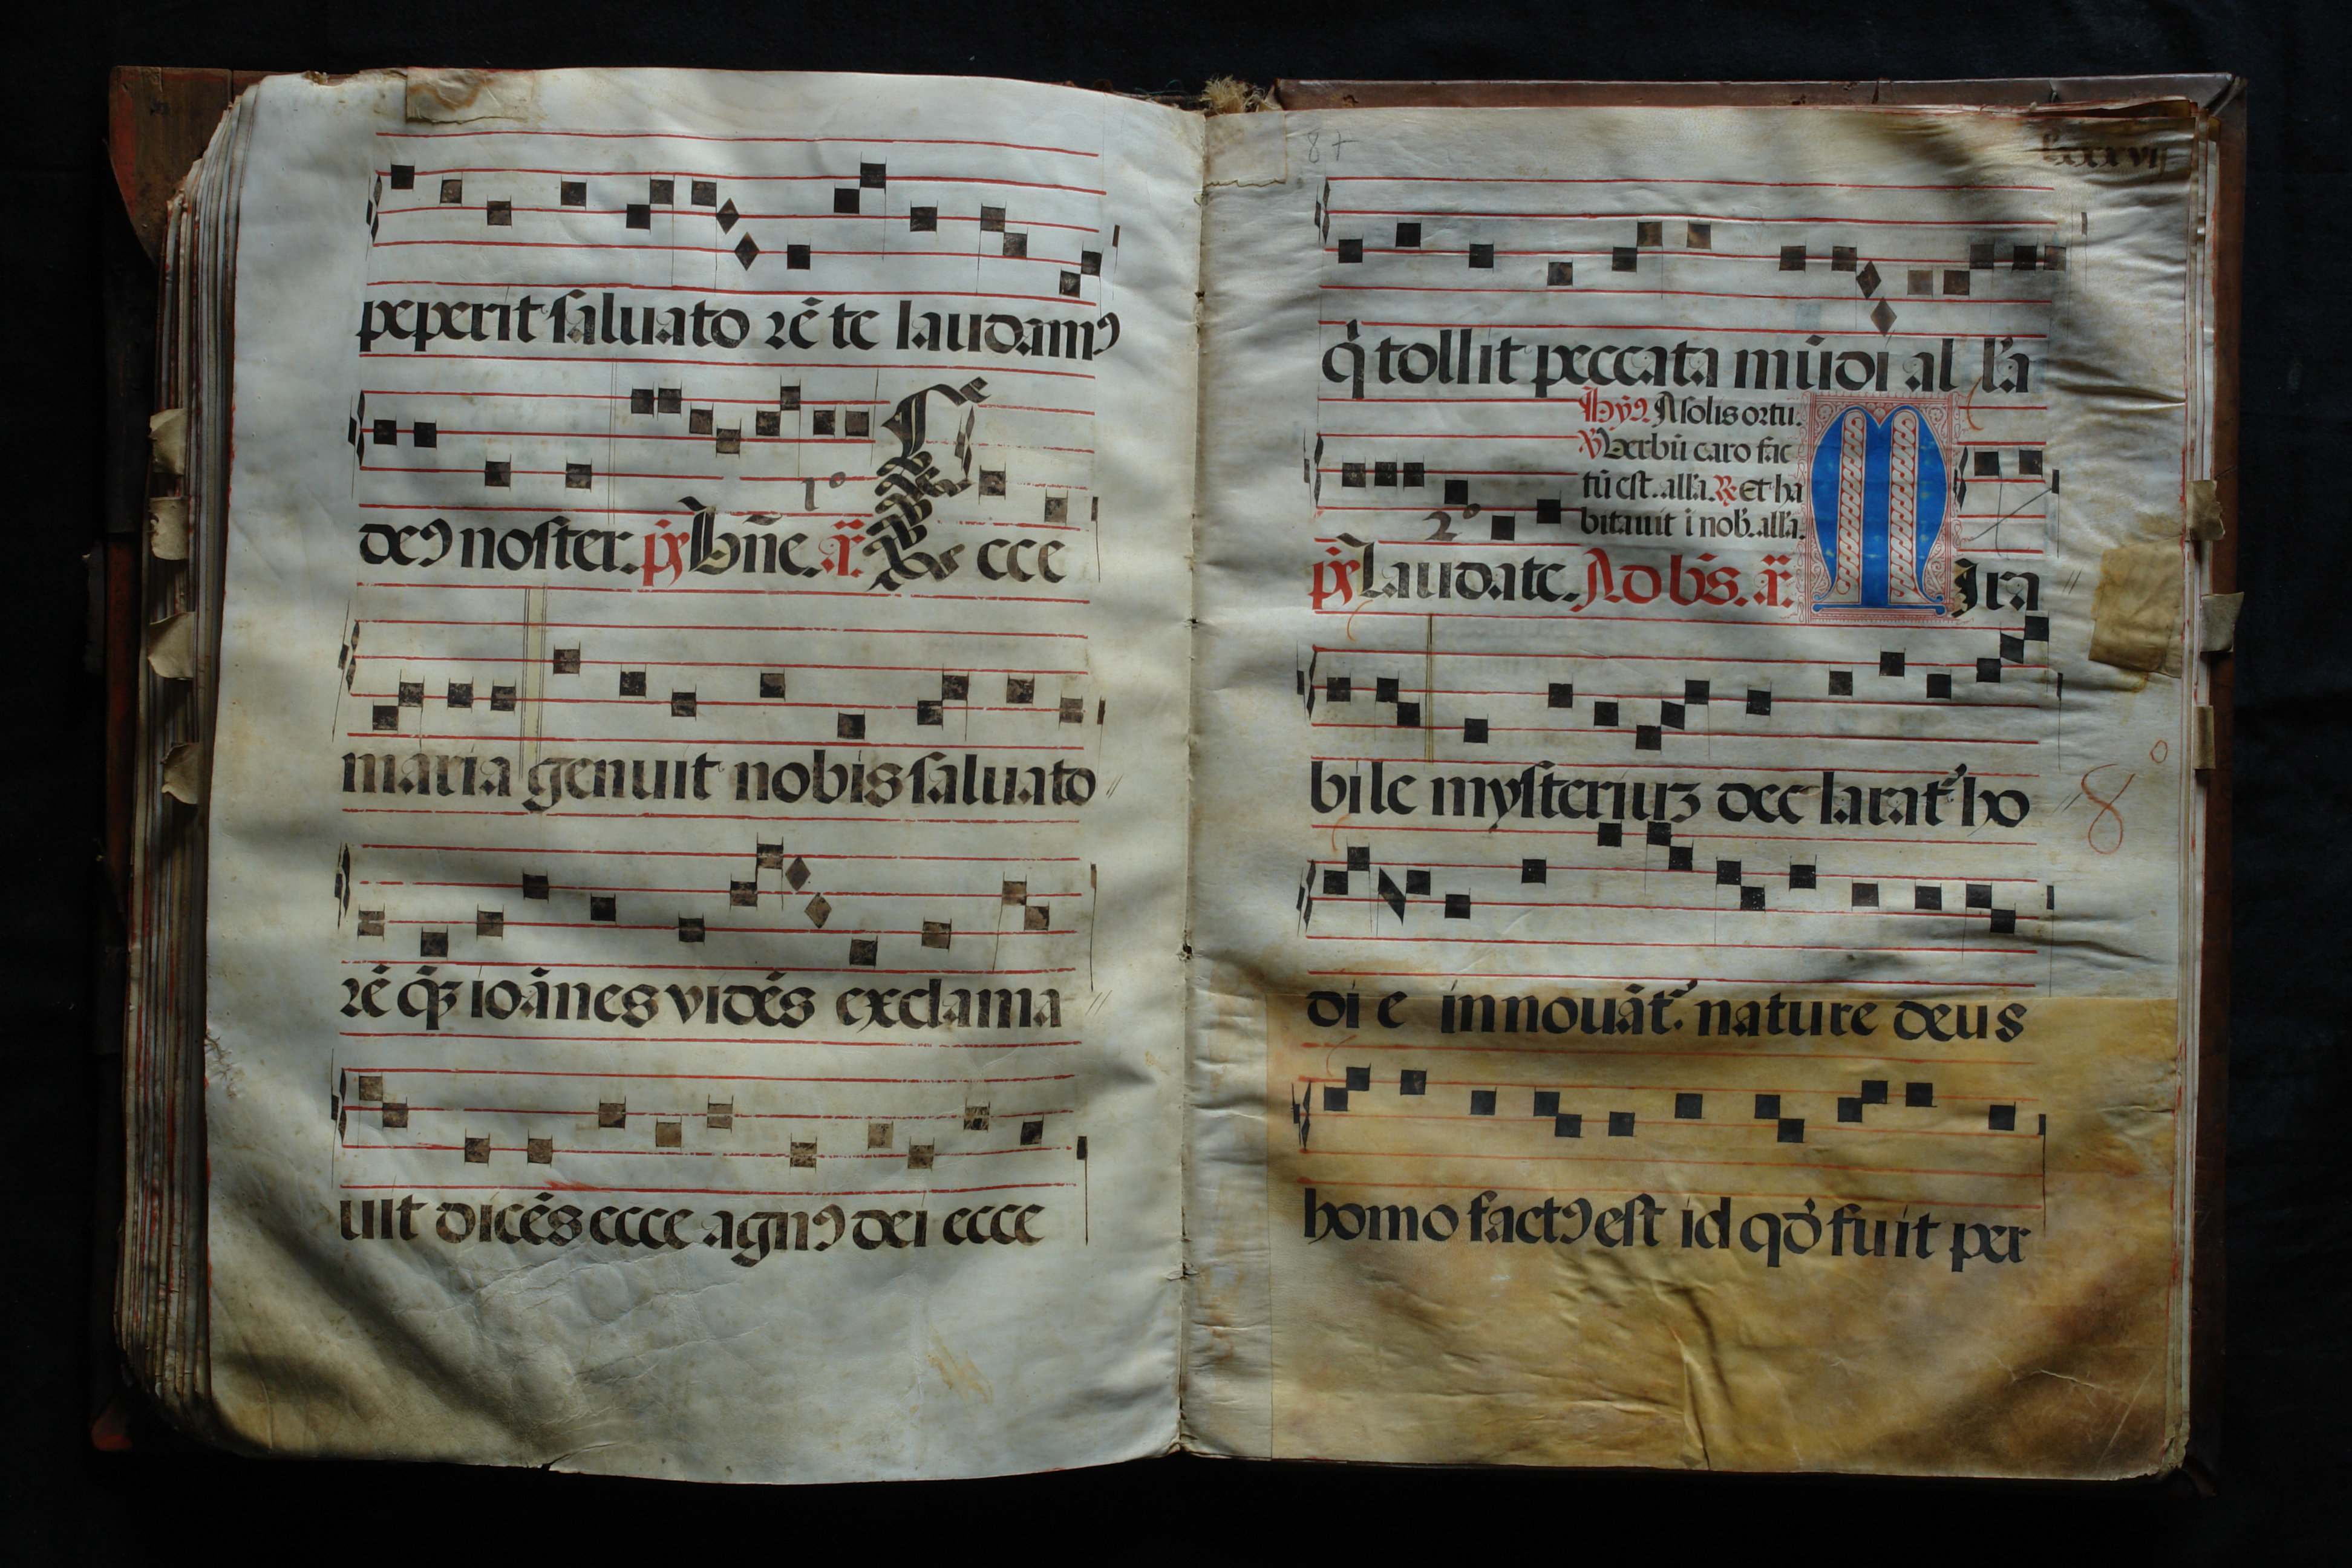 peperit saluato rē te laudamꝰ
1°
deꝰ noster. pſ̄ Bn̄e. ā. Ecce
maria genuit nobis saluato
rē q̄ʒ ioānes vidēs exclama
uit dicēs ecce agnꝰ dei ecce
87
lxxxvij
q̇ tollit peccata mūdi al l'a
Hẏꝰ A solis ortu.
℣ Verbū caro fac
tū est. alla. ℟ Et ha
bitauit ī nob̄. alla.
2°
pſ̄ Laudate. Ad bn̄s. ā. Mira
bile mysteriuʒ dec larat᷑ ho
8°
di e innouāt᷑ nature deus
homo factꝰ est id qḋ fuit per